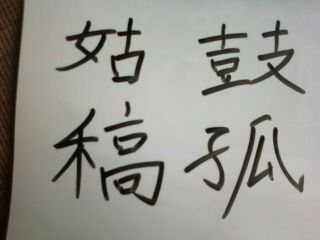 姑 鼓
稿 孤